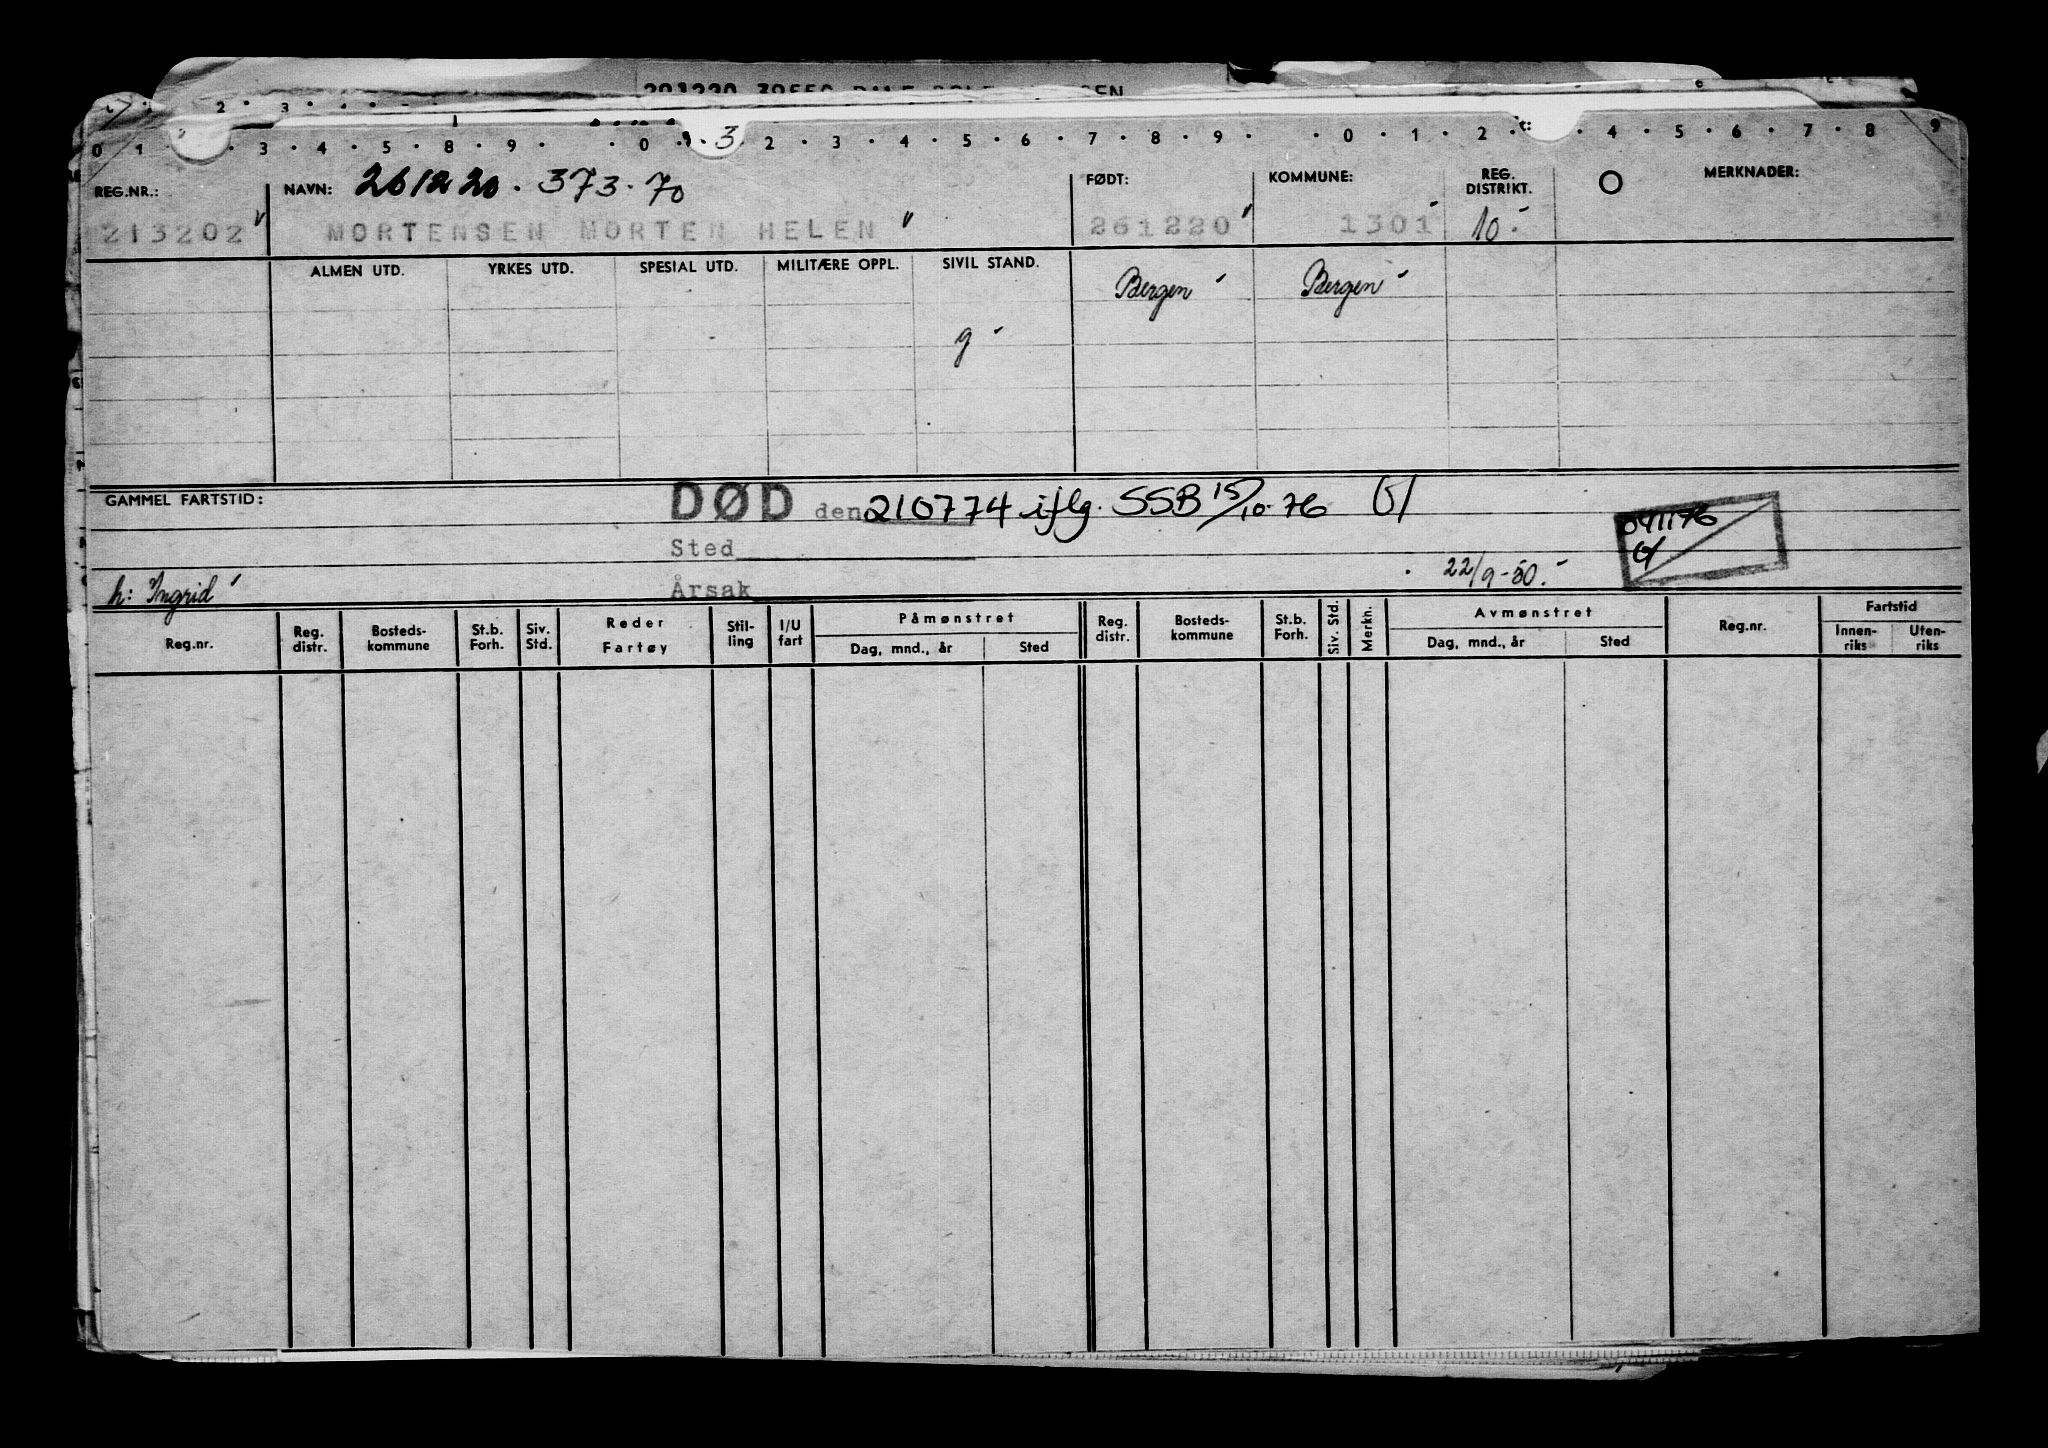 0 1 · 3 · 4 · 5 · 8 · 9 · 0 · 3 2 · 3 · 4 · 5 · 6 · 7 · 8 · 9 · · 0 · 1 · 2 · 4 · 5 · 6 · 7 · 8 9
REG.NR.: NAVN: 261220. 373.70 FØDT: KOMMUNE: REG. DISTRIKT. MERKNADER:
213202 MORTENSEN MORTEN HELEN 261220 1301 10
ALMEN UTD. YRKES UTD. SPESIAL UTD. MILITÆRE OPPL. SIVIL STAND. Bergen Bergen
g
GAMMEL FARTSTID: DØD den 210774 iflg. SSB 15/10-76
041176
Sted
h: Ingrid Årsak 22/9-50.
Reg.nr. Reg. distr. Bosteds- kommune St.b. Forh. Siv. Std. Reder Fartøy Stil- ling I/U fart Påmønstret Dag, mnd., år Sted Reg. distr. Bosteds- kommune St.b. Forh. Siv. Std. Merkn. Avmønstret Dag, mnd., år Sted Reg.nr. Fartstid Innen- riks Uten- riks